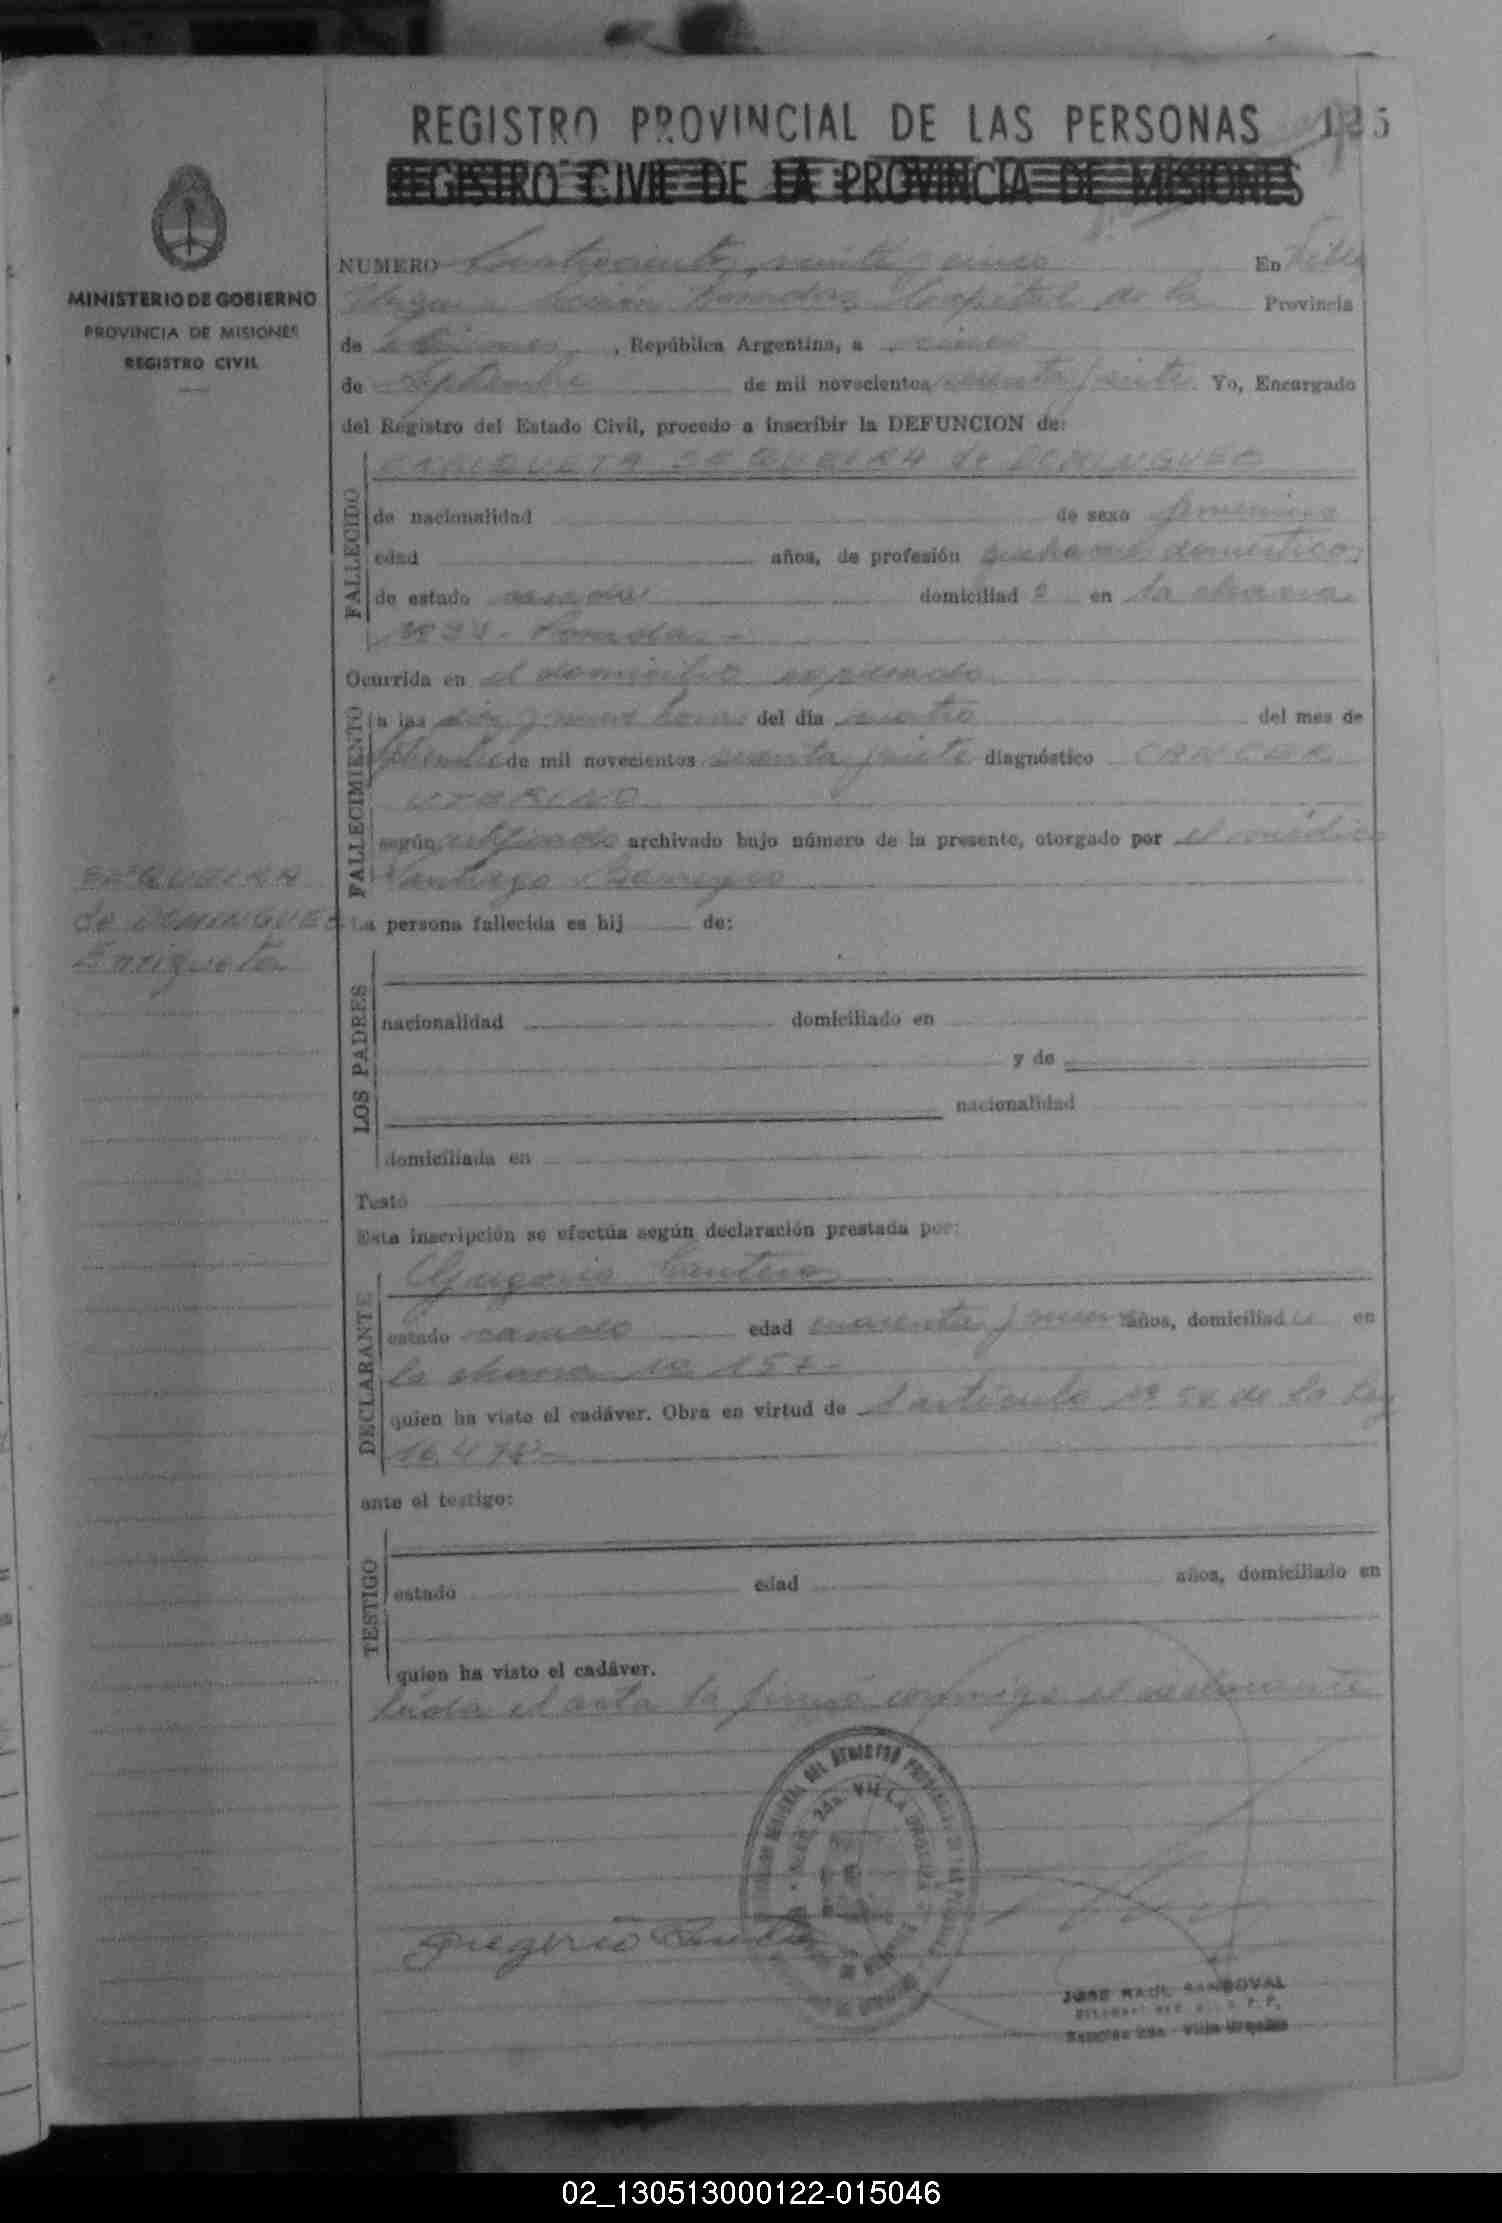 REGISTRO PROVINCIAL DE LAS PERSONAS 125
REGISTRO CIVIL DE LA PROVINCIA DE MISIONES
MINISTERIO DE GOBIERNO
PROVINCIA DE MISIONES
REGISTRO CIVIL
NUMERO Cuatrocientos veinte cinco En Villa
Urquiza Sección Posadas Capital de la Provincia
de Misiones, República Argentina, a cinco
de Septiembre de mil novecientos sesenta y siete. Yo, Encargado
del Registro del Estado Civil, procedo a inscribir la DEFUNCION de:
FALLECIDO
ENRIQUETA SEQUEIRA de DOMINGUEZ
de nacionalidad de sexo femenino
edad años, de profesión quehaceres domésticos
de estado casada domiciliad a en la chacra
Nº 34 - Posadas -
Ocurrida en el domicilio expresado
FALLECIMIENTO
a las diez y nueve horas del día cuatro del mes de
Septiembre de mil novecientos sesenta y siete diagnóstico CANCER
UTERINO
según certificado archivado bajo número de la presente, otorgado por el médico
Santiago
SEQUEIRA
de DOMINGUEZ
Enriqueta
La persona fallecida es hij de:
LOS PADRES
nacionalidad domiciliado en
y de
nacionalidad
domiciliada en
Testó
Esta inscripción se efectúa según declaración prestada por:
DECLARANTE
Gregorio Cantero
estado casado edad cuarenta y nueve años, domiciliad o en
la chacra Nº 157 -
quien ha visto el cadáver. Obra en virtud de l artículo Nº 54 de la Ley
16.478 -
ante el testigo:
TESTIGO
estado edad años, domiciliado en
quien ha visto el cadáver.
Leída el acta la firmó conmigo el declarante
VILLA URQUIZA
Gregorio Cantero
JOSE RAUL SANDOVAL
Sección 2da. - Villa Urquiza
02_130513000122-015046